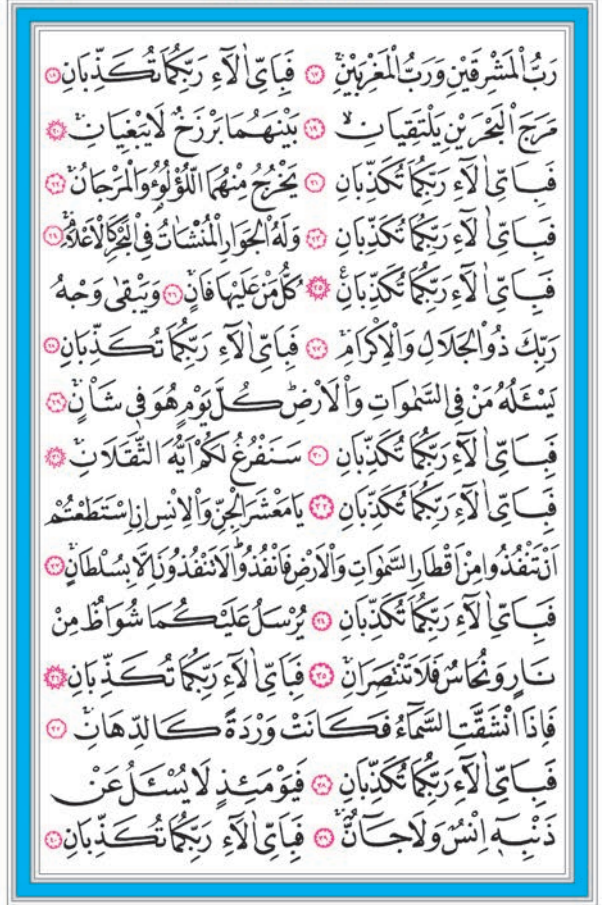 رَبُّ الْمَشْرِقَيْنِ وَرَبُّ الْمَغْرِبَيْنِۚ ﴿١٧﴾ فَبِاَيِّ اٰلَٓاءِ رَبِّكُمَا تُكَذِّبَانِ ﴿١٨﴾
مَرَجَ الْبَحْرَيْنِ يَلْتَقِيَانِۙ ﴿١٩﴾ بَيْنَهُمَا بَرْزَخٌ لَا يَبْغِيَانِۚ ﴿٢٠﴾
فَبِاَيِّ اٰلَٓاءِ رَبِّكُمَا تُكَذِّبَانِ ﴿٢١﴾ يَخْرُجُ مِنْهُمَا اللُّؤْلُؤُ وَالْمَرْجَانُۚ ﴿٢٢﴾
فَبِاَيِّ اٰلَٓاءِ رَبِّكُمَا تُكَذِّبَانِ ﴿٢٣﴾ وَلَهُ الْجَوَارِ الْمُنْشَاٰتُ فِي الْبَحْرِ كَالْاَعْلَامِۚ ﴿٢٤﴾
فَبِاَيِّ اٰلَٓاءِ رَبِّكُمَا تُكَذِّبَانِ۟ ﴿٢٥﴾ كُلُّ مَنْ عَلَيْهَا فَانٍۚ ﴿٢٦﴾ وَيَبْقٰى وَجْهُ
رَبِّكَ ذُو الْجَلَالِ وَالْاِكْرَامِۚ ﴿٢٧﴾ فَبِاَيِّ اٰلَٓاءِ رَبِّكُمَا تُكَذِّبَانِ ﴿٢٨﴾
يَسْـَٔلُهُ مَنْ فِي السَّمٰوَاتِ وَالْاَرْضِۜ كُلَّ يَوْمٍ هُوَ فِي شَأْنٍۚ ﴿٢٩﴾
فَبِاَيِّ اٰلَٓاءِ رَبِّكُمَا تُكَذِّبَانِ ﴿٣٠﴾ سَنَفْرُغُ لَكُمْ اَيُّهَ الثَّقَلَانِۚ ﴿٣١﴾
فَبِاَيِّ اٰلَٓاءِ رَبِّكُمَا تُكَذِّبَانِ ﴿٣٢﴾ يَا مَعْشَرَ الْجِنِّ وَالْاِنْسِ اِنِ اسْتَطَعْتُمْ
اَنْ تَنْفُذُوا مِنْ اَقْطَارِ السَّمٰوَاتِ وَالْاَرْضِ فَانْفُذُواۜ لَا تَنْفُذُونَ اِلَّا بِسُلْطَانٍۚ ﴿٣٣﴾
فَبِاَيِّ اٰلَٓاءِ رَبِّكُمَا تُكَذِّبَانِ ﴿٣٤﴾ يُرْسَلُ عَلَيْكُمَا شُوَاظٌ مِنْ
نَارٍ وَنُحَاسٌ فَلَا تَنْتَصِرَانِۚ ﴿٣٥﴾ فَبِاَيِّ اٰلَٓاءِ رَبِّكُمَا تُكَذِّبَانِ ﴿٣٦﴾
فَاِذَا انْشَقَّتِ السَّمَٓاءُ فَكَانَتْ وَرْدَةً كَالدِّهَانِۚ ﴿٣٧﴾
فَبِاَيِّ اٰلَٓاءِ رَبِّكُمَا تُكَذِّبَانِ ﴿٣٨﴾ فَيَوْمَئِذٍ لَا يُسْـَٔلُ عَنْ
ذَنْبِه۪ٓ اِنْسٌ وَلَا جَٓانٌّۚ ﴿٣٩﴾ فَبِاَيِّ اٰلَٓاءِ رَبِّكُمَا تُكَذِّبَانِ ﴿٤٠﴾